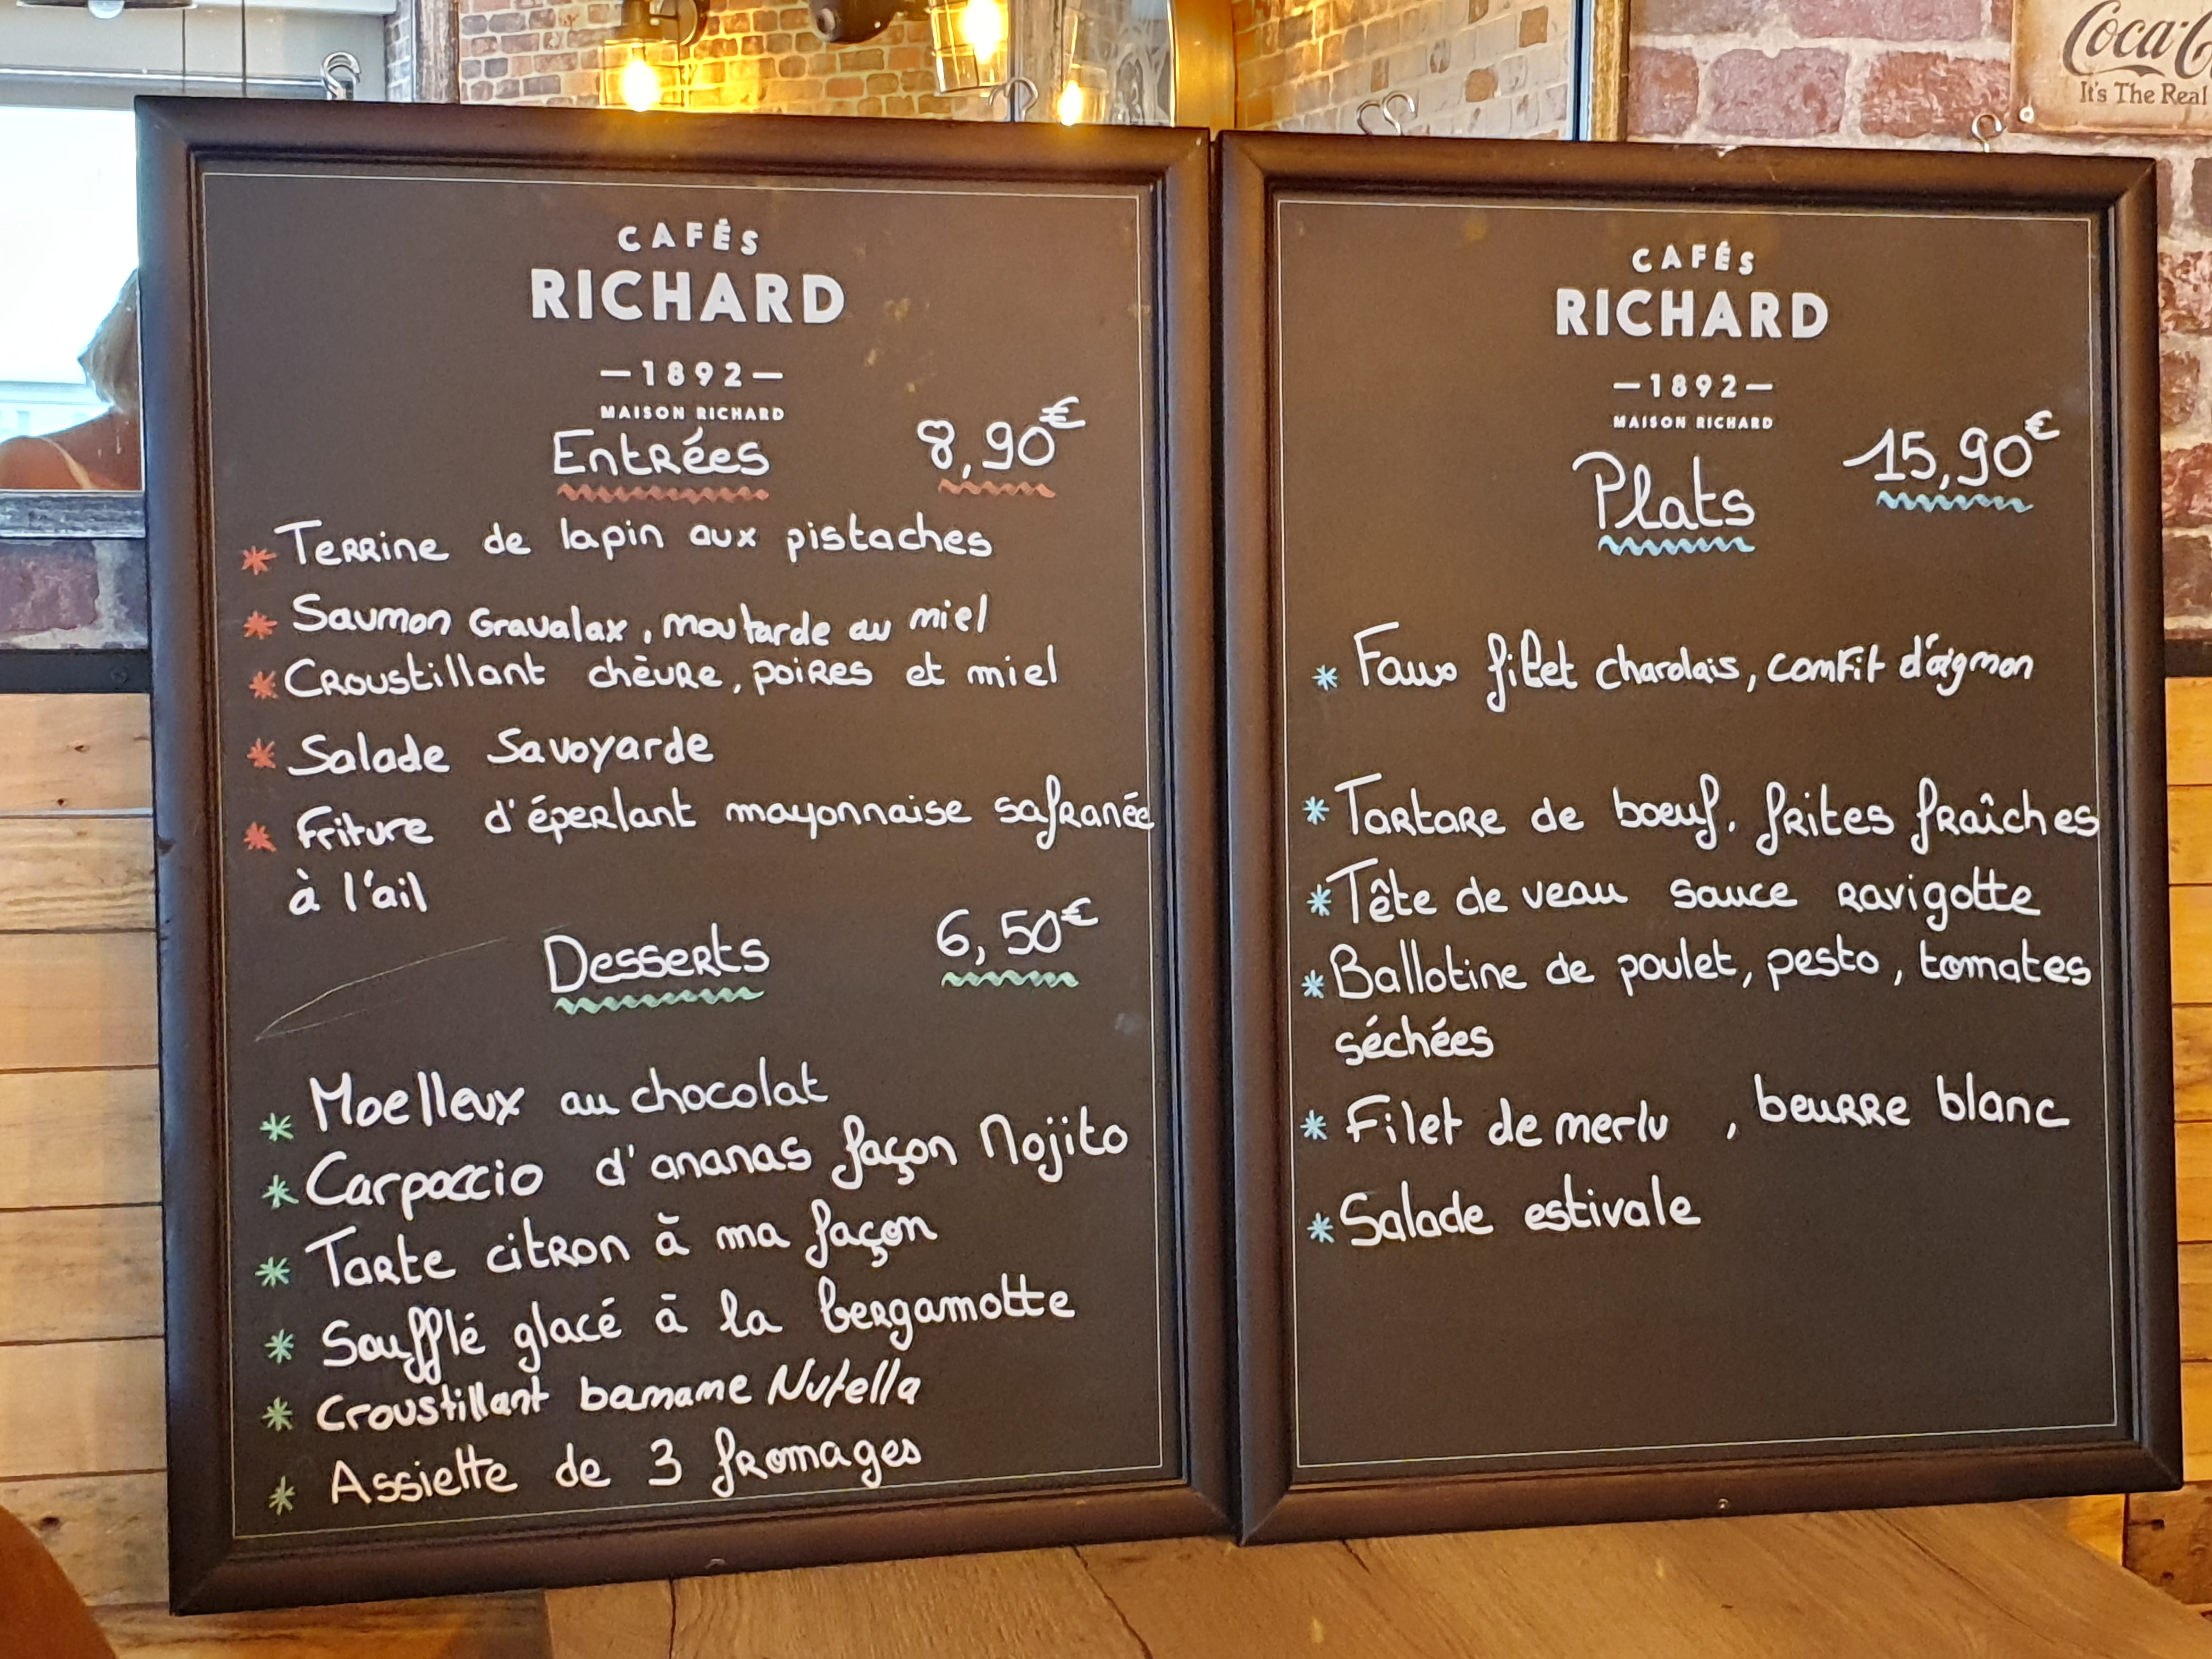 Coca-C
It's The Real
CAFÉS
RICHARD
—1892—
MAISON RICHARD
Entrées 8,90€
* Terrine de lapin aux pistaches
* Saumon Gravalax, moutarde au miel
* Croustillant chèvre, poires et miel
* Salade Savoyarde
* Friture d'éperlant mayonnaise safranée
à l'ail
Desserts 6,50€
* Moelleux au chocolat
* Carpaccio d'ananas façon Mojito
* Tarte citron à ma façon
* Soufflé glacé à la bergamotte
* Croustillant banane Nutella
* Assiette de 3 fromages
CAFÉS
RICHARD
—1892—
MAISON RICHARD
Plats 15,90€
* Faux filet charolais, comfit d'oignon
* Tartare de boeuf, frites fraîches
* Tête de veau sauce ravigotte
* Ballotine de poulet, pesto, tomates
séchées
* Filet de merlu , beurre blanc
* Salade estivale